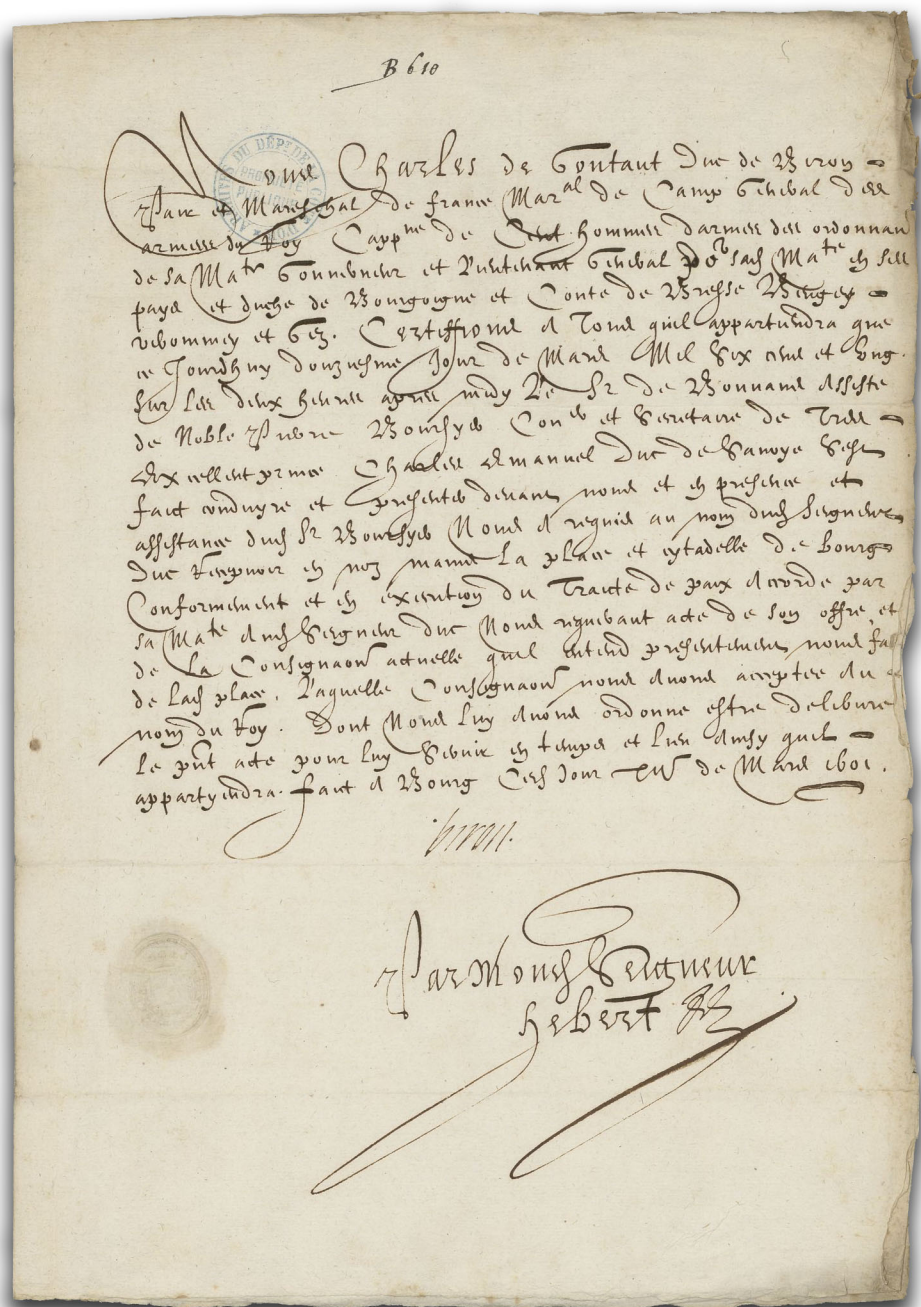 B 610
Nous Charles de Gontaut Duc de Biron
Pair et Mareschal de france Mar^al de Camp General des
armees du Roy Capp^ne de Cent hommes darmes des ordonnan
de sa Ma^te Gouverneur et Lieutenant General po^r sad Ma^te en ses
pays et duche de Bourgoigne et Conte de Bresse Beugey
Verommey et Gez. Certeffions A Tous quil appartiendra que
ce Jourdhuy douziesme Jour de Mars Mil Six cens et Ung
sur les deux heures apres midy Le Sr de Bonvans Assiste
de Noble Pierre Boursyer Con^er et Secretaire de Tres
Excellent prince Charles Emanuel Duc de Savoye Sest
faict conduyre et presenter devant nous et en presence et
assistance dud Sr Boursyer Nous A requis au nom dud Seigneur
Duc Recepvoir en noz mains La place et cytadelle de bourg
Conformement et en execution du Traicte de paix Acorde par
sa Ma^te Aud Seigneur duc Nous requerant acte de son offre et
de La Consignaon actuelle quil entend presentement nous fa
de lad place. Laquelle Consignaon nous Avons acceptee Au
nom du Roy. Dont Nous luy Avons ordonne estre delibvre
le pnt acte pour luy Servir en temps et lieu Ainsy quil
appartyendra. faict A Bourg Ced Jour XII de Mars 1601.
biron
Par Mond Seigneur
hebert
ARCHIVES DU DÉPT DE LA CÔTE D'OR
PROPRIÉTÉ PUBLIQUE